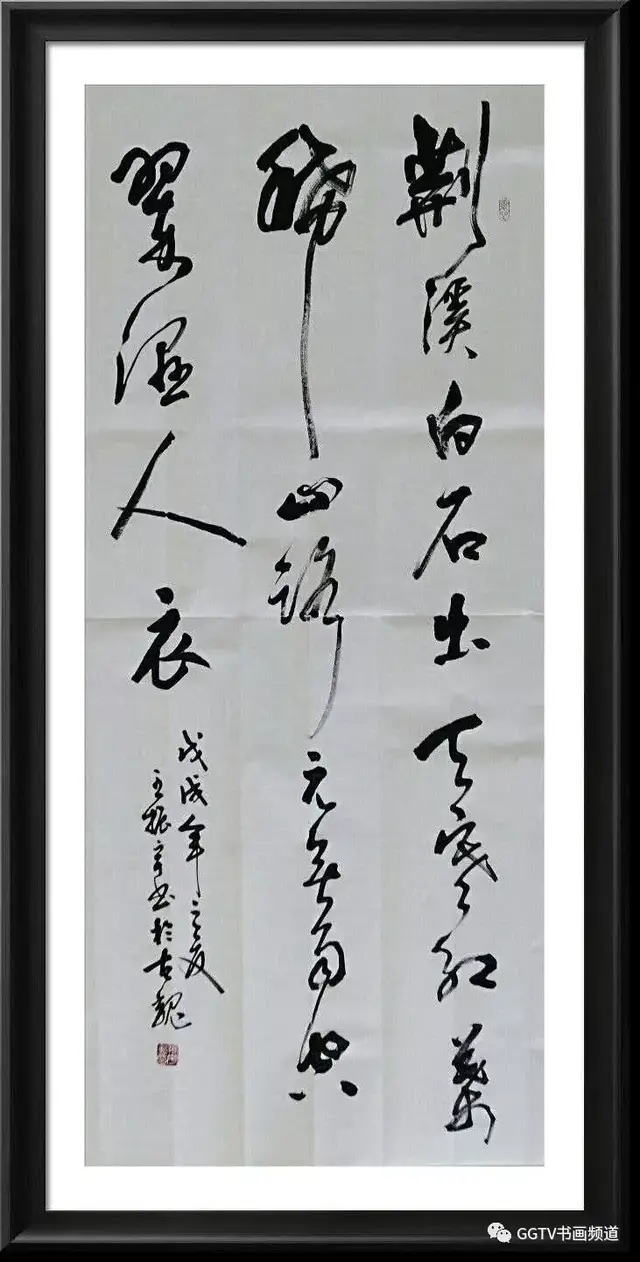 荊溪白石出天寒紅葉
稀山路元無雨空
翠濕人衣
戊戌年之夏
王振书於古魏
GGTV书画频道